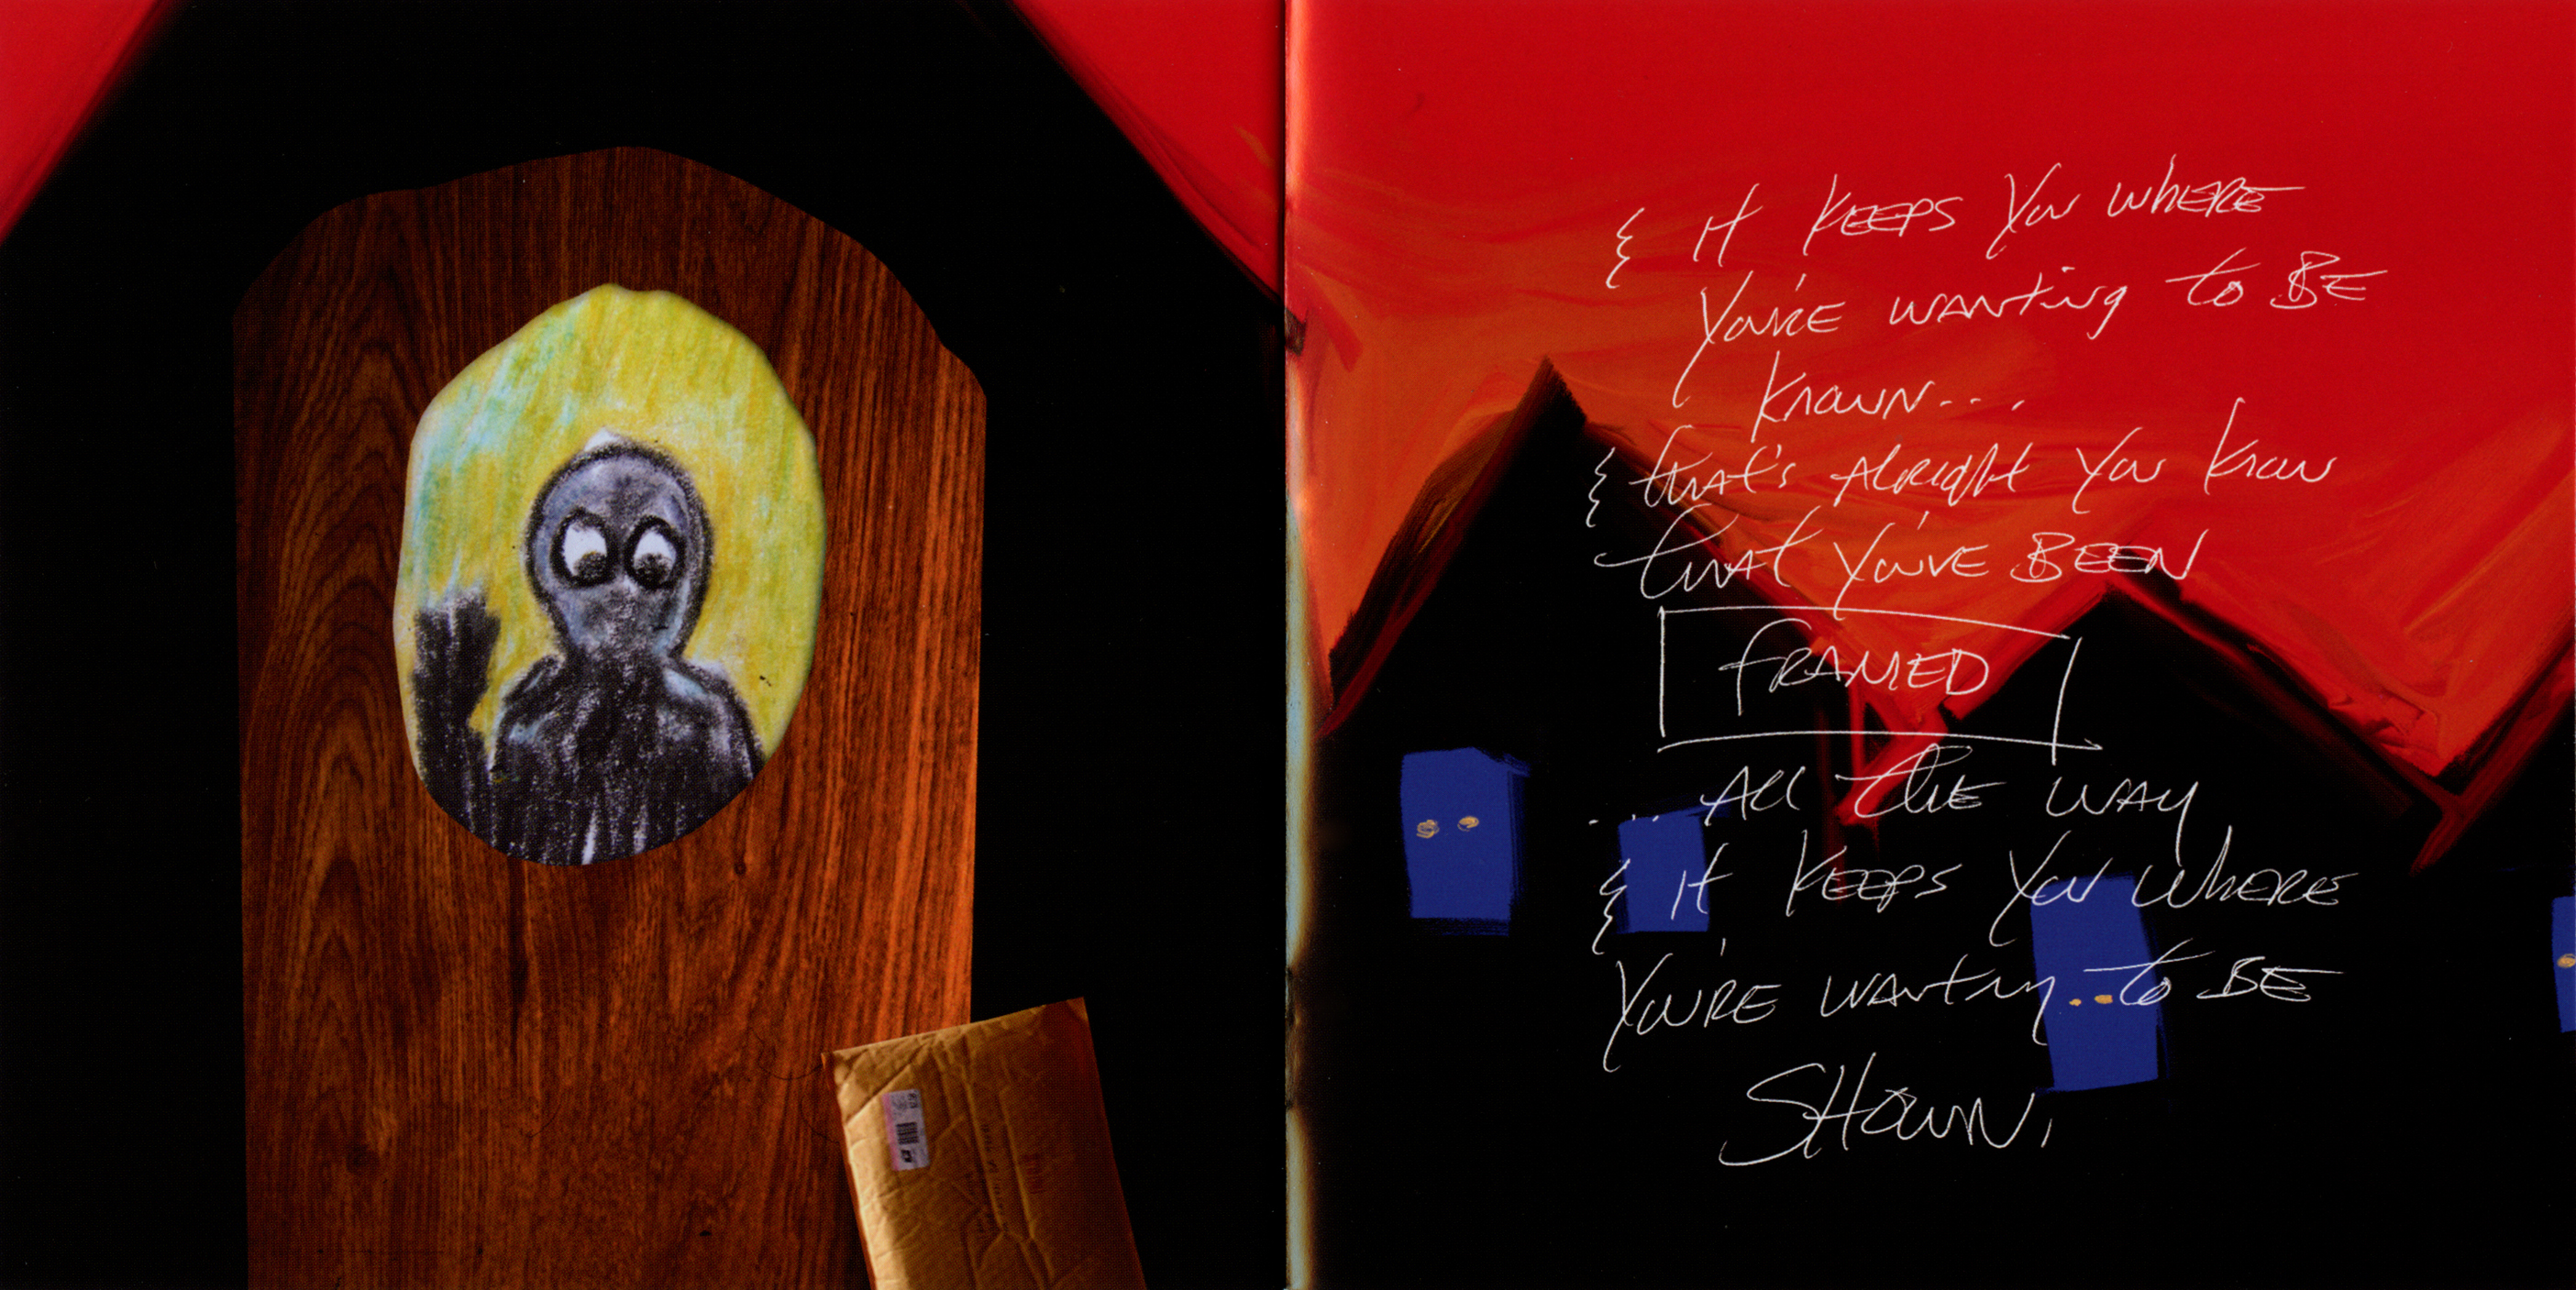 { It KEEPS You wHERE
You'RE wANting to BE
KNOWN...
{ that's AlRight You Know
that You'VE BEEN
FRAMED
... All the wAy
{ It KEEPS You wHERE
You'RE wANting to BE
SHOWN.